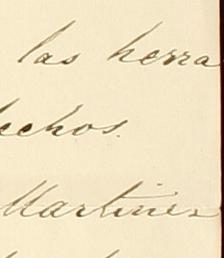 las herra
echos.
Martinez